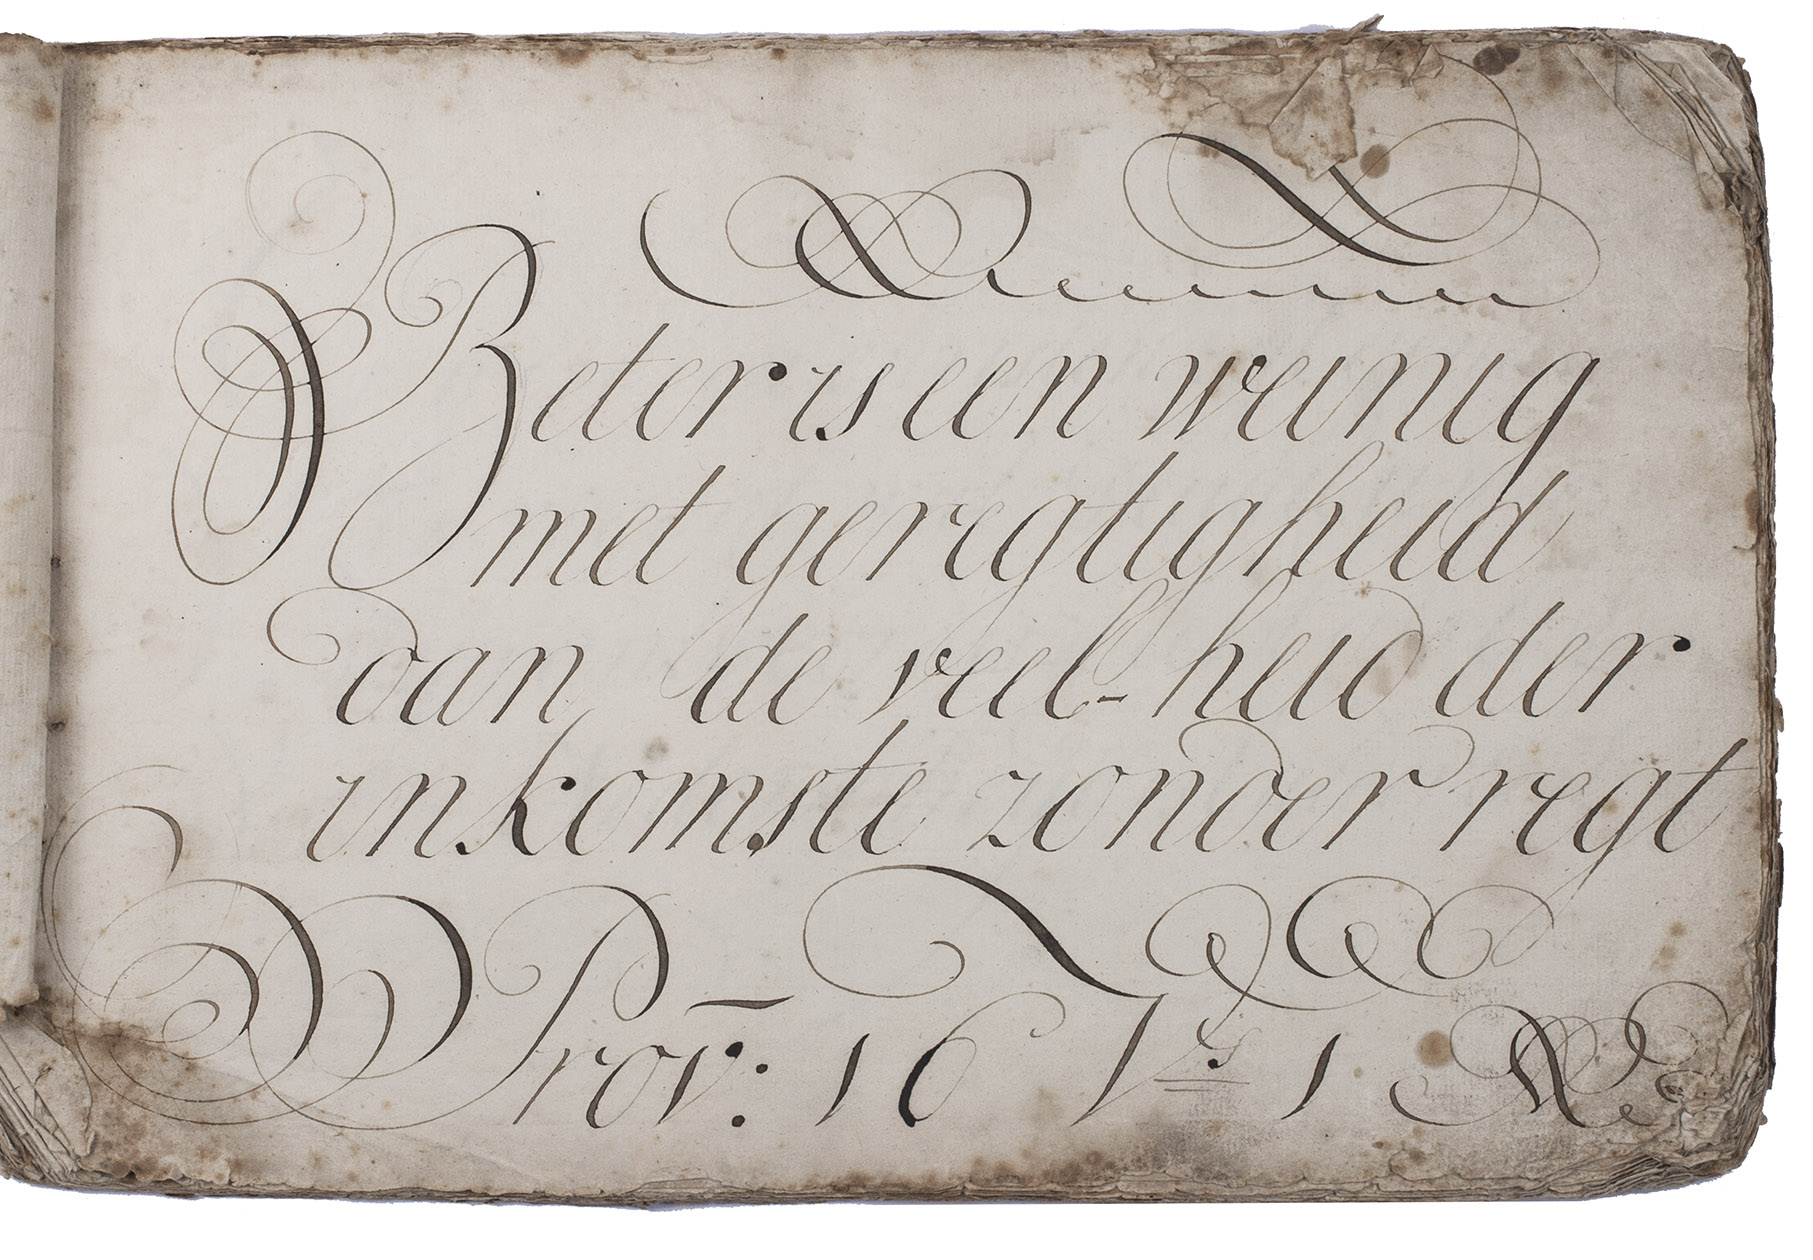 Beter is een weinig
met geregtigheid
dan de veel-heid der
inkomste zonder regt
Prov: 16 Vs 1